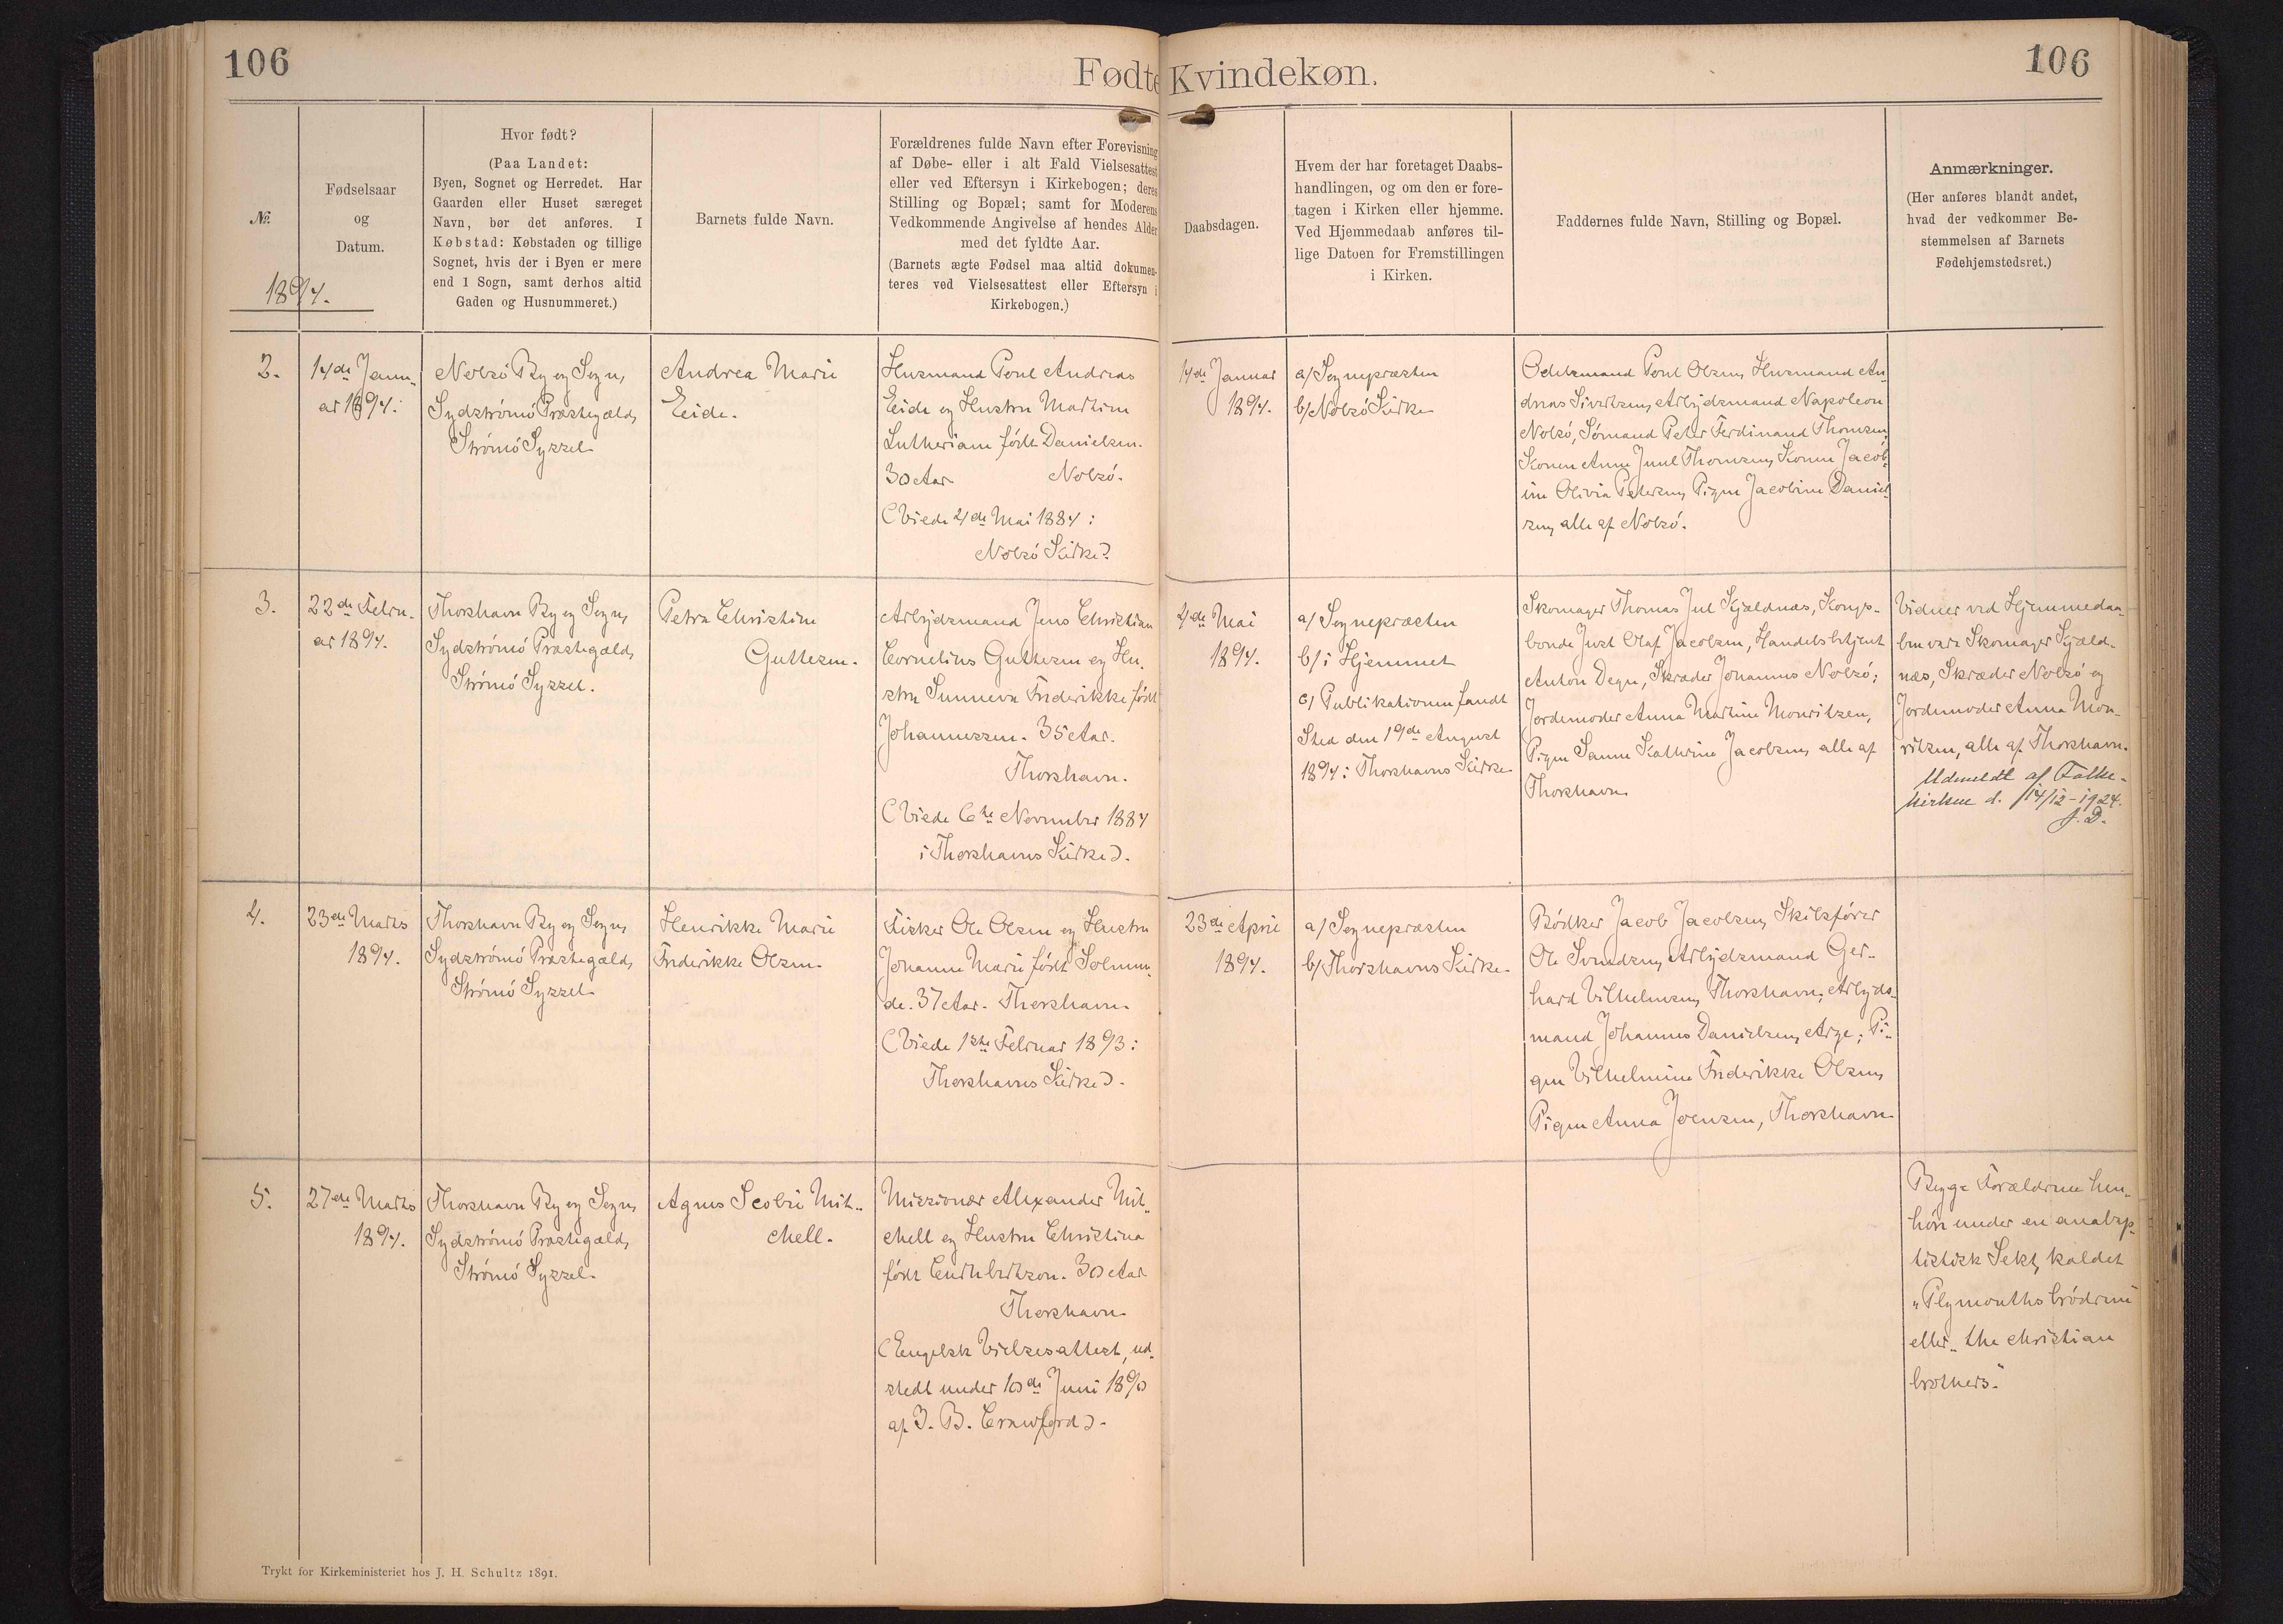 106
Fødte Kvindekøn.
106
№
1894.
Fødselsaar
og
Datum.
Hvor født?
(Paa Landet:
Byen, Sognet og Herredet. Har
Gaarden eller Huset særeget
Navn, bør det anføres. I
Købstad: Købstaden og tillige
Sognet, hvis der i Byen er mere
end 1 Sogn, samt derhos altid
Gaden og Husnummeret.)
Barnets fulde Navn.
Forældrenes fulde Navn efter Forevisning
af Døbe- eller i alt Fald Vielsesattest
eller ved Eftersyn i Kirkebogen; deres
Stilling og Bopæl; samt for Moderens
Vedkommende Angivelse af hendes Alder
med det fyldte Aar.
(Barnets ægte Fødsel maa altid dokumen-
teres ved Vielsesattest eller Eftersyn i
Kirkebogen.)
Daabsdagen.
Hvem der har foretaget Daabs-
handlingen, og om den er fore-
tagen i Kirken eller hjemme.
Ved Hjemmedaab anføres til-
lige Datoen for Fremstillingen
i Kirken.
Faddernes fulde Navn, Stilling og Bopæl.
Anmærkninger.
(Her anføres blandt andet,
hvad der vedkommer Be-
stemmelsen af Barnets
Fødehjemstedsret.)
2.
14de Janu-
ar 1894.
Nolsö By og Sogn,
Sydströmö Præstegæld,
Strömö Syssel
Andrea Marie
Eide.
Husmand Poul Andreas
Eide og Hustru Martine
Lutheriane født Danielsen.
30 Aar Nolsö.
(Viede 4de Mai 1884 i
Nolsö Kirke)
14de Januar
1894.
a/ Sognepræsten
b/ Nolsö Kirke
Odelsmand Poul Olsen, Husmand An-
dreas Sivertsen, Arbejdsmand Napoleon
Nolsö, Sömand Peter Ferdinand Thomsen,
Konen Anne Juul Thomsen, Konen Jacob-
ine Olivia Petersen, Pigen Jacobine Daniel-
sen, alle af Nolsö.
3.
22de Febru-
ar 1894.
Thorshavn By og Sogn,
Sydströmö Præstegæld,
Strömö Syssel.
Petra Christine
Guttesen.
Arbejdsmand Jens Christian
Cornelius Guttesen og Hu-
stru Sunneva Frederikke født
Johannessen. 35 Aar.
Thorshavn.
(Viede 6te November 1884
i Thorshavns Kirke).
4de Mai
1894.
a/ Sognepræsten
b/ i Hjemmet
c/ Publikationen fandt
Sted den 19de August
1894 i Thorshavns Kirke
Skomager Thomas Jul Kjældnæs, Kongs-
bonde Just Olaf Jacobsen, Handelsbetjent
Anton Degn, Skræder Johannes Nolsö;
Jordemoder Anna Martine Mouritzen,
Pigen Sanne Kathrine Jacobsen, alle af
Thorshavn
Vidner ved Hjemmedaa-
ben vare Skomager Kjæld-
næs, Skræder Nolsö og
Jordemoder Anna Mou-
ritzen, alle af Thorshavn.
Udmeldt af Folke-
kirken d. 14/12-1924.
J. D.
4.
23de Marts
1894.
Thorshavn By og Sogn,
Sydströmö Præstegæld,
Strömö Syssel
Henrikke Marie
Frederikke Olsen
Fisker Ole Olsen og Hustru
Johanne Marie født Solmun-
de. 37 Aar. Thorshavn
(Viede 1ste Februar 1893 i
Thorshavns Kirke).
23de April
1894.
a/ Sognepræsten
b/ Thorshavns Kirke.
Bödker Jacob Jacobsen, Skibsfører
Ole Svendsen, Arbejdsmand Ger-
hard Vilhelmsen, Thorshavn; Arbejds-
mand Johannes Danielsen, Arge; Pi-
gen Vilhelmine Frederikke Olsen,
Pigen Anna Joensen, Thorshavn
5.
27de Marts
1894.
Thorshavn By og Sogn,
Sydströmö Præstegæld,
Strömö Syssel
Agnes Scobie Mit-
chell.
Missionær Alexander Mit-
chell og Hustru Christina
født Cuthbertson. 30 Aar
Thorshavn
(Engelsk Vielsesattest, ud-
stedt under 10de Juni 1890
af J. B. Crawford).
Begge Forældrene hen-
höre under en anabap-
tistisk Sekt, kaldet
"Plymouthsbrödrene"
eller "the christian
brothers."
Trykt for Kirkeministeriet hos J. H. Schultz 1891.